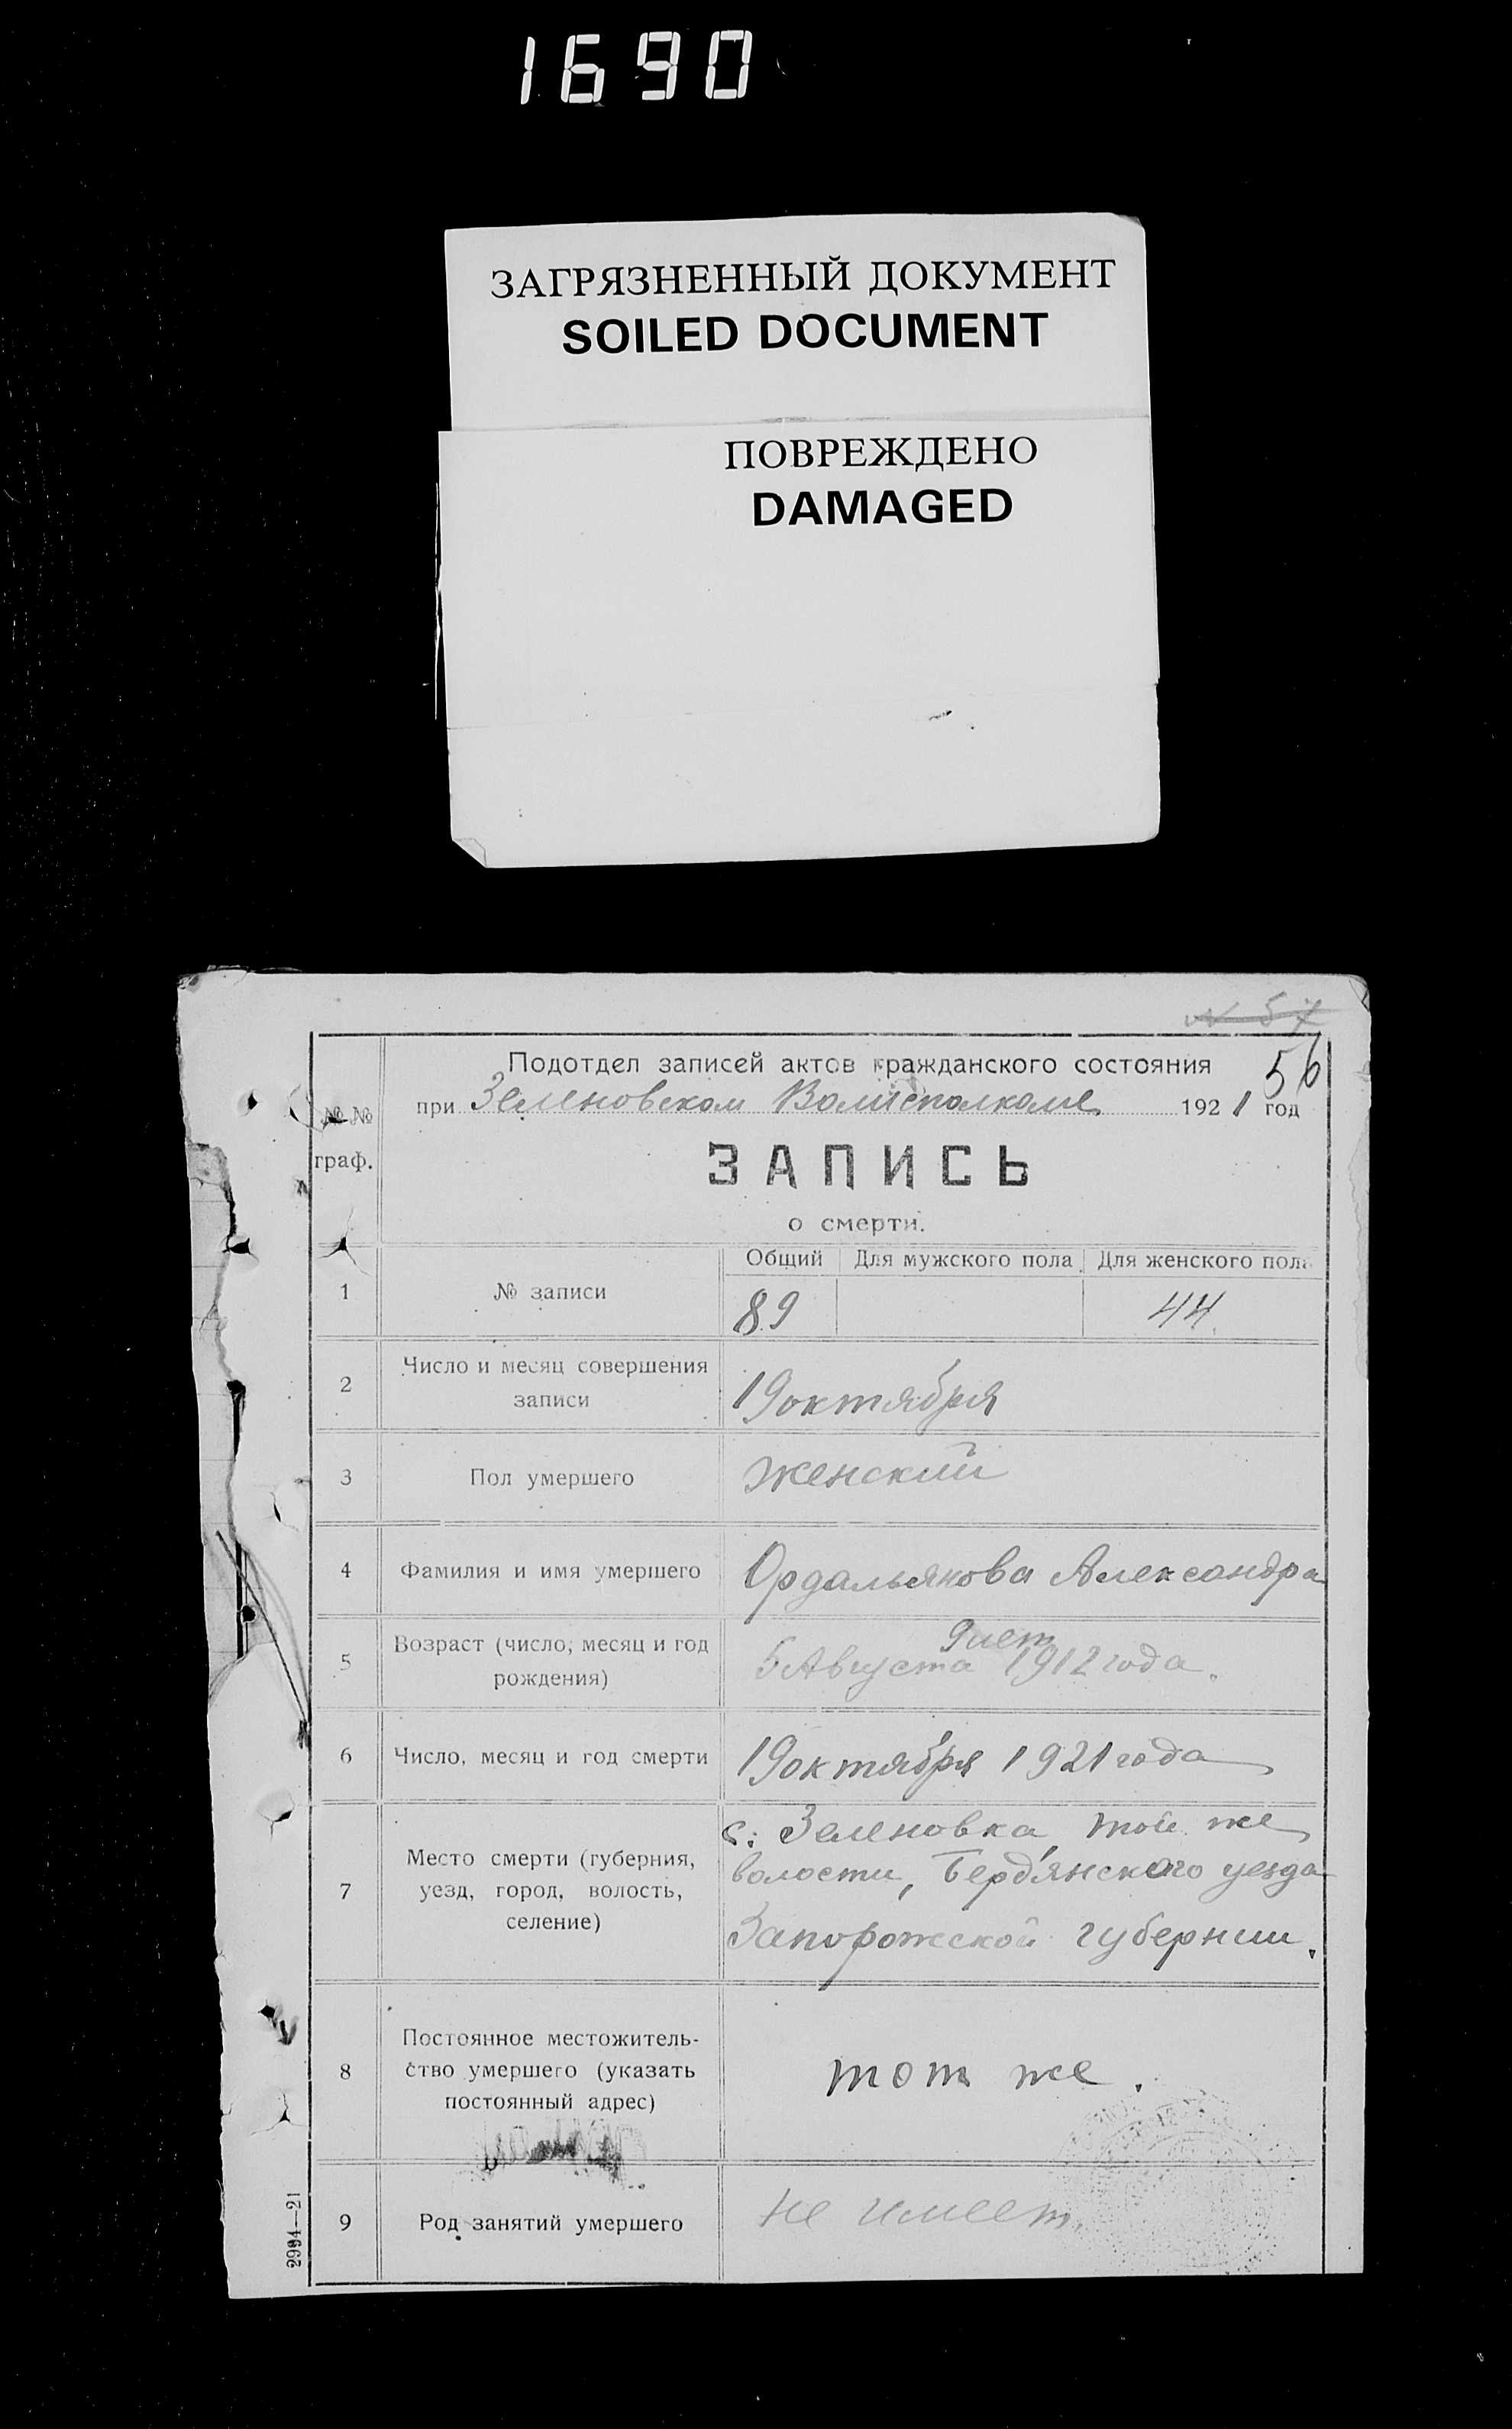 1690
ЗАГРЯЗНЕННЫЙ ДОКУМЕНТ
SOILED DOCUMENT
ПОВРЕЖДЕНО
DAMAGED
№ 57
56
Подотдел записей актов гражданского состояния
при Зеленовском Волисполкоме 1921 год
№№ граф.
ЗАПИСЬ
о смерти.
Общий Для мужского пола Для женского пола
1 № записи 89 44
2 Число и месяц совершения
записи 19 октября
3 Пол умершего женский
4 Фамилия и имя умершего Ордальянова Александра
9 лет
5 Возраст (число, месяц и год
рождения) 5 Августа 1912 года.
6 Число, месяц и год смерти 19 октября 1921 года
7 Место смерти (губерния,
уезд, город, волость,
селение)
с. Зеленовка, той же
волости, Бердянского уезда
Запорожской губернии.
8 Постоянное местожитель-
ство умершего (указать
постоянный адрес)
тот же.
9 Род занятий умершего не имеет.
2994—21